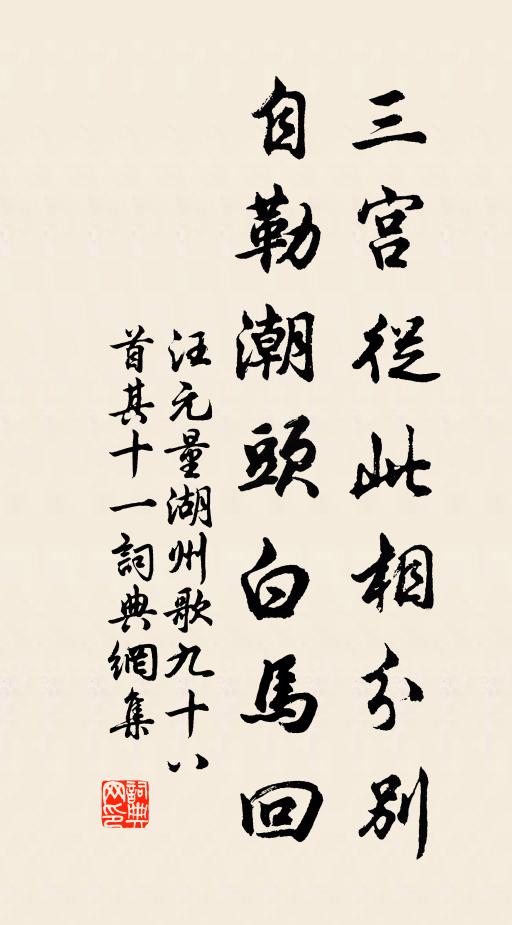 三宮從此相分別
自勒潮頭白馬回
汪元量湖州歌九十八
首其十一詞典網集
詞典网印